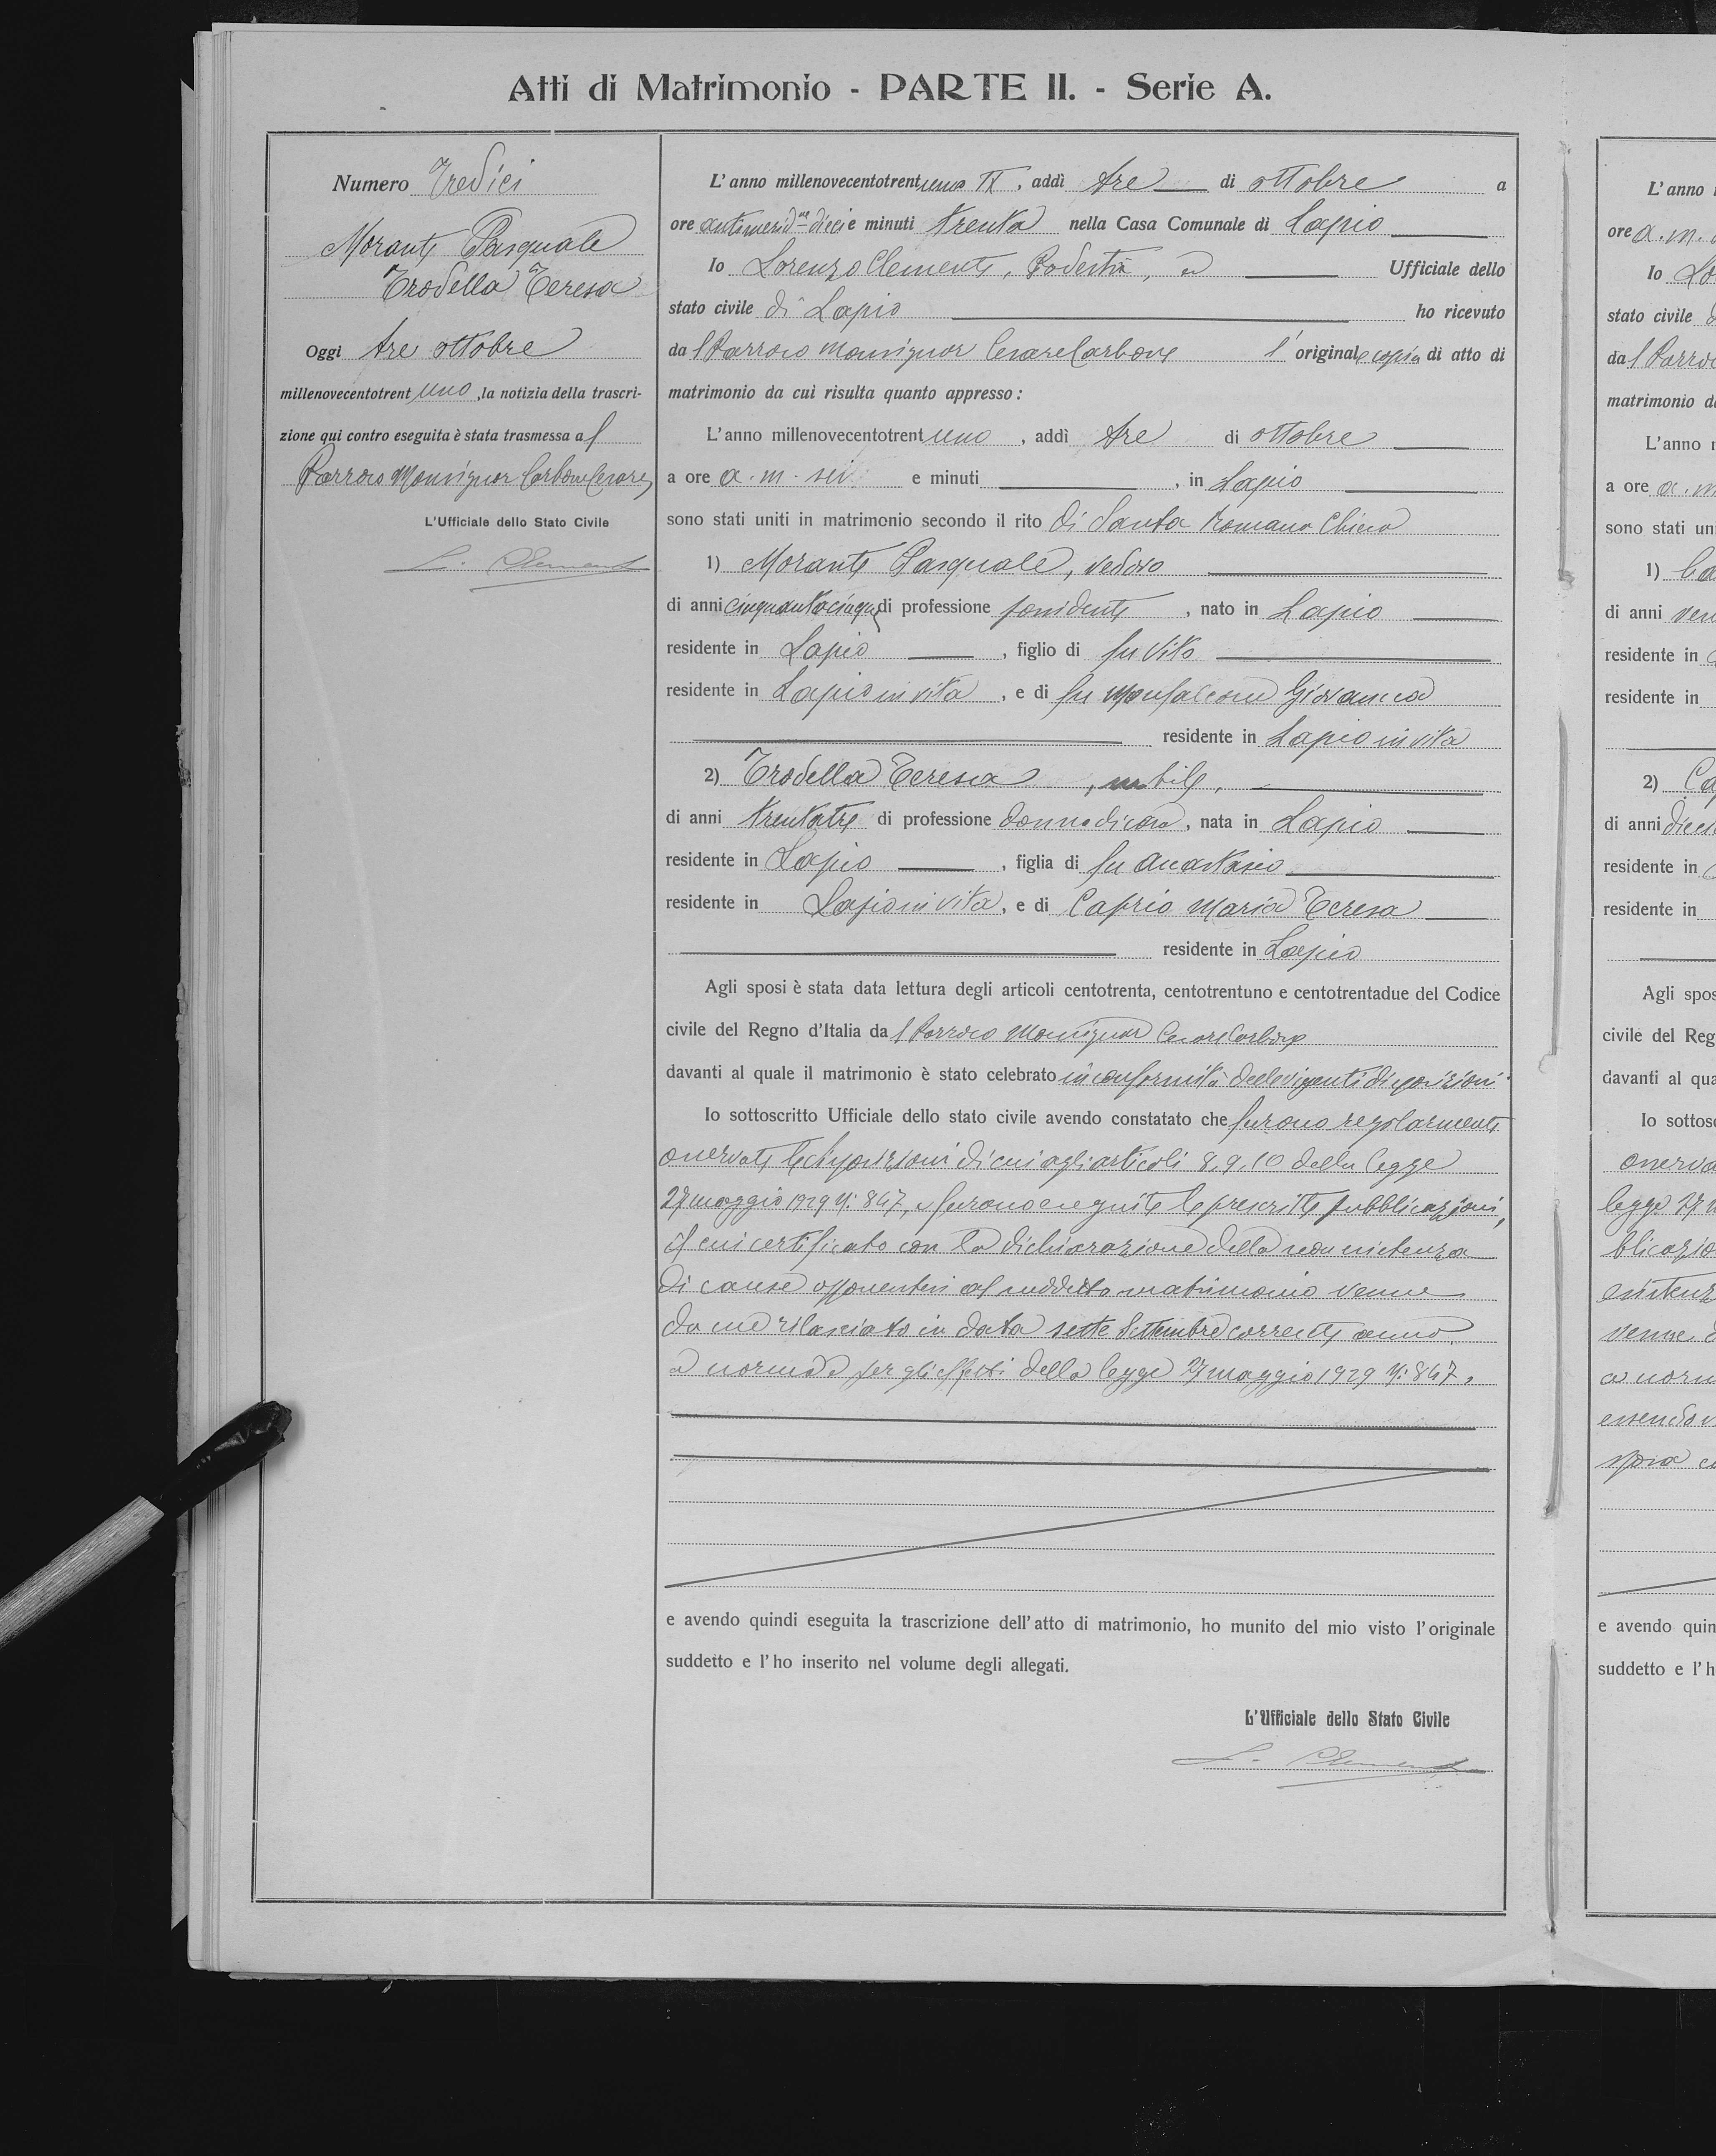 Atti di Matrimonio - PARTE II. - Serie A.
Numero Tredici
Morante Pasquale
Trodella Teresa
Oggi tre ottobre
millenovecentotrent uno, la notizia della trascri-
zione qui contro eseguita è stata trasmessa al
Parroco Monsignor Carbone Cesare
L'Ufficiale dello Stato Civile
L. Clemente
L'anno millenovecentotrentuno IX, addì tre di ottobre a
ore antimerid.ne dieci e minuti trenta nella Casa Comunale di Lapio
Io Lorenzo Clemente, Podestà, ed Ufficiale dello
stato civile di Lapio ho ricevuto
dal Parroco Monsignor Cesare Carbone l'originale copia di atto di
matrimonio da cui risulta quanto appresso:
L'anno millenovecentotrent uno, addì tre di ottobre
a ore a.m. sei e minuti , in Lapio
sono stati uniti in matrimonio secondo il rito di Santa Romana Chiesa
1) Morante Pasquale, vedovo
di anni cinquantacinque di professione possidente, nato in Lapio
residente in Lapio, figlio di fu Vito
residente in Lapio in vita, e di fu Monfalcone Giovanna
residente in Lapio in vita
2) Trodella Teresa, nubile,
di anni trentatre di professione donna di casa, nata in Lapio
residente in Lapio, figlia di fu Anastasio
residente in Lapio in vita, e di Caprio Maria Teresa
residente in Lapio
Agli sposi è stata data lettura degli articoli centotrenta, centotrentuno e centotrentadue del Codice
civile del Regno d'Italia dal Parroco Monsignor Cesare Carbone
davanti al quale il matrimonio è stato celebrato in conformità delle vigenti disposizioni
Io sottoscritto Ufficiale dello stato civile avendo constatato che furono regolarmente
osservate le disposizioni di cui agli articoli 8. 9. 10 della legge
27 maggio 1929 N: 847, e furono eseguite le prescritte pubblicazioni,
il cui certificato con la dichiarazione della non esistenza
di cause opponentesi al suddetto matrimonio venne
da me rilasciato in data sette Settembre corrente anno
a norma e per gli effetti della legge 27 maggio 1929 N: 847.
e avendo quindi eseguita la trascrizione dell'atto di matrimonio, ho munito del mio visto l'originale
suddetto e l'ho inserito nel volume degli allegati.
L'Ufficiale dello Stato Civile
L. Clemente
L'anno
ore a.m.
Io Lo
stato civile
dal Parroc
matrimonio d
L'anno
a ore a.m
sono stati un
1) Ca
di anni ven
residente in
residente in
2) Ca
di anni dieci
residente in
residente in
Agli spos
civile del Reg
davanti al qua
Io sottos
osserva
legge 27 m
blicazio
esistenz
venne d
a norm
essendo
sposa
e avendo quin
suddetto e l'h